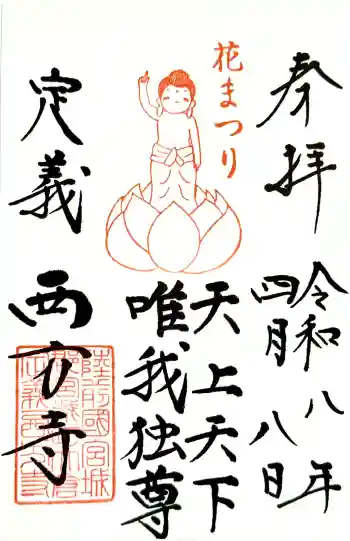 奉拝
令和八年
四月八日
花まつり
天上天下
唯我独尊
定義
西方寺